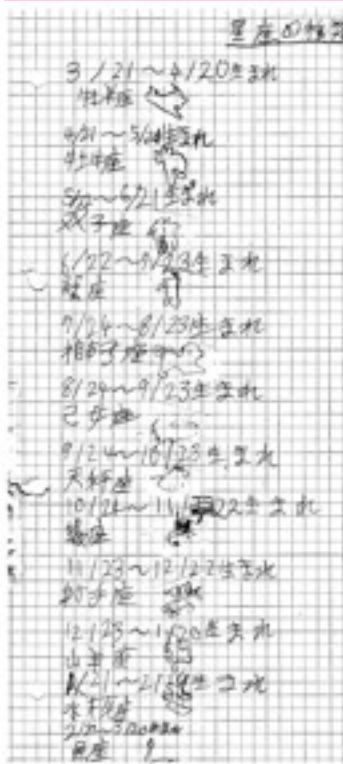 星座の種類
3/21〜4/20生まれ
牡羊座
4/21〜5/21生まれ
牡牛座
5/22〜6/21生まれ
双子座
6/22〜7/23生まれ
蟹座
7/24〜8/23生まれ
8/24〜9/23生まれ
乙女座
9/24〜10/23生まれ
天秤座
10/24〜11/22生まれ
蠍座
11/23〜12/22生まれ
12/23〜1/20生まれ
山羊座
1/21〜2/19生まれ
水瓶座
魚座